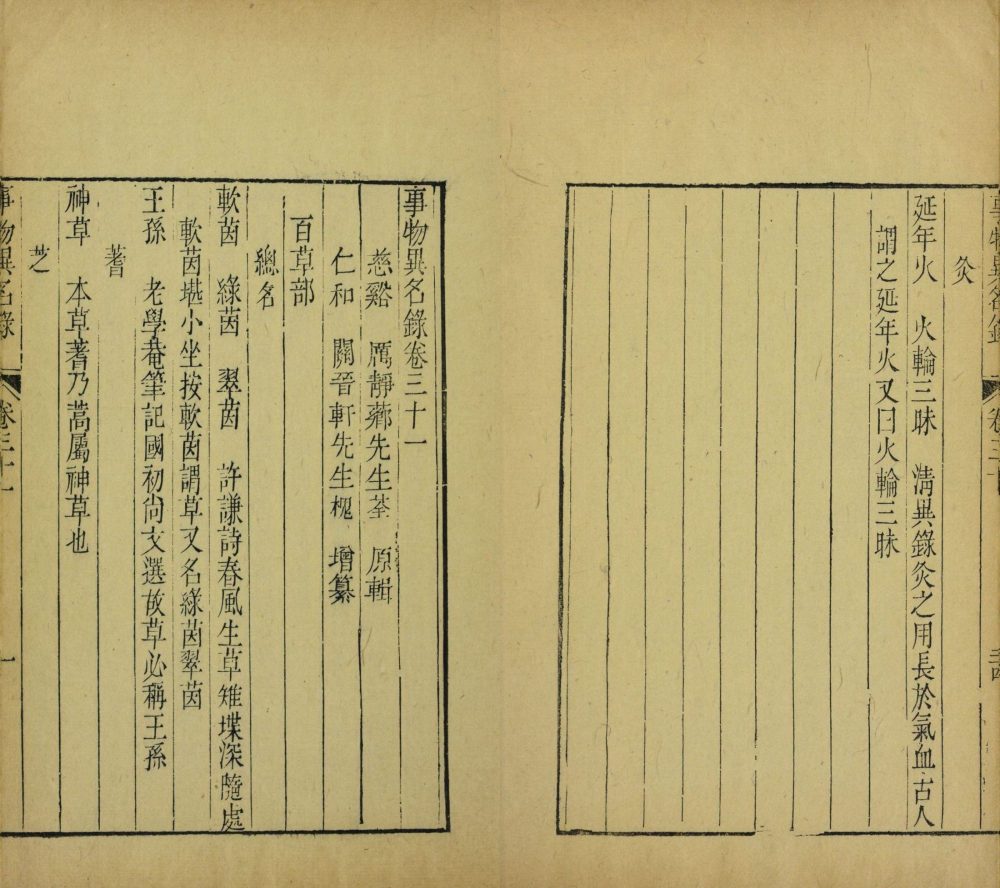 事物異名錄 卷三十
灸
延年火 火輪三昧 清異錄灸之用長於氣血古人
謂之延年火又曰火輪三昧
事物異名錄卷三十一
慈谿 厲靜薌先生荃 原輯
仁和 關晉軒先生槐 增纂
百草部
總名
軟茵 綠茵 翠茵 許謙詩春風生草雉堞深隨處
軟茵堪小坐按軟茵謂草又名綠茵翠茵
王孫 老學菴筆記國初尚文選故草必稱王孫
蓍
神草 本草蓍乃蒿屬神草也
芝
事物異名錄 卷三十一 一